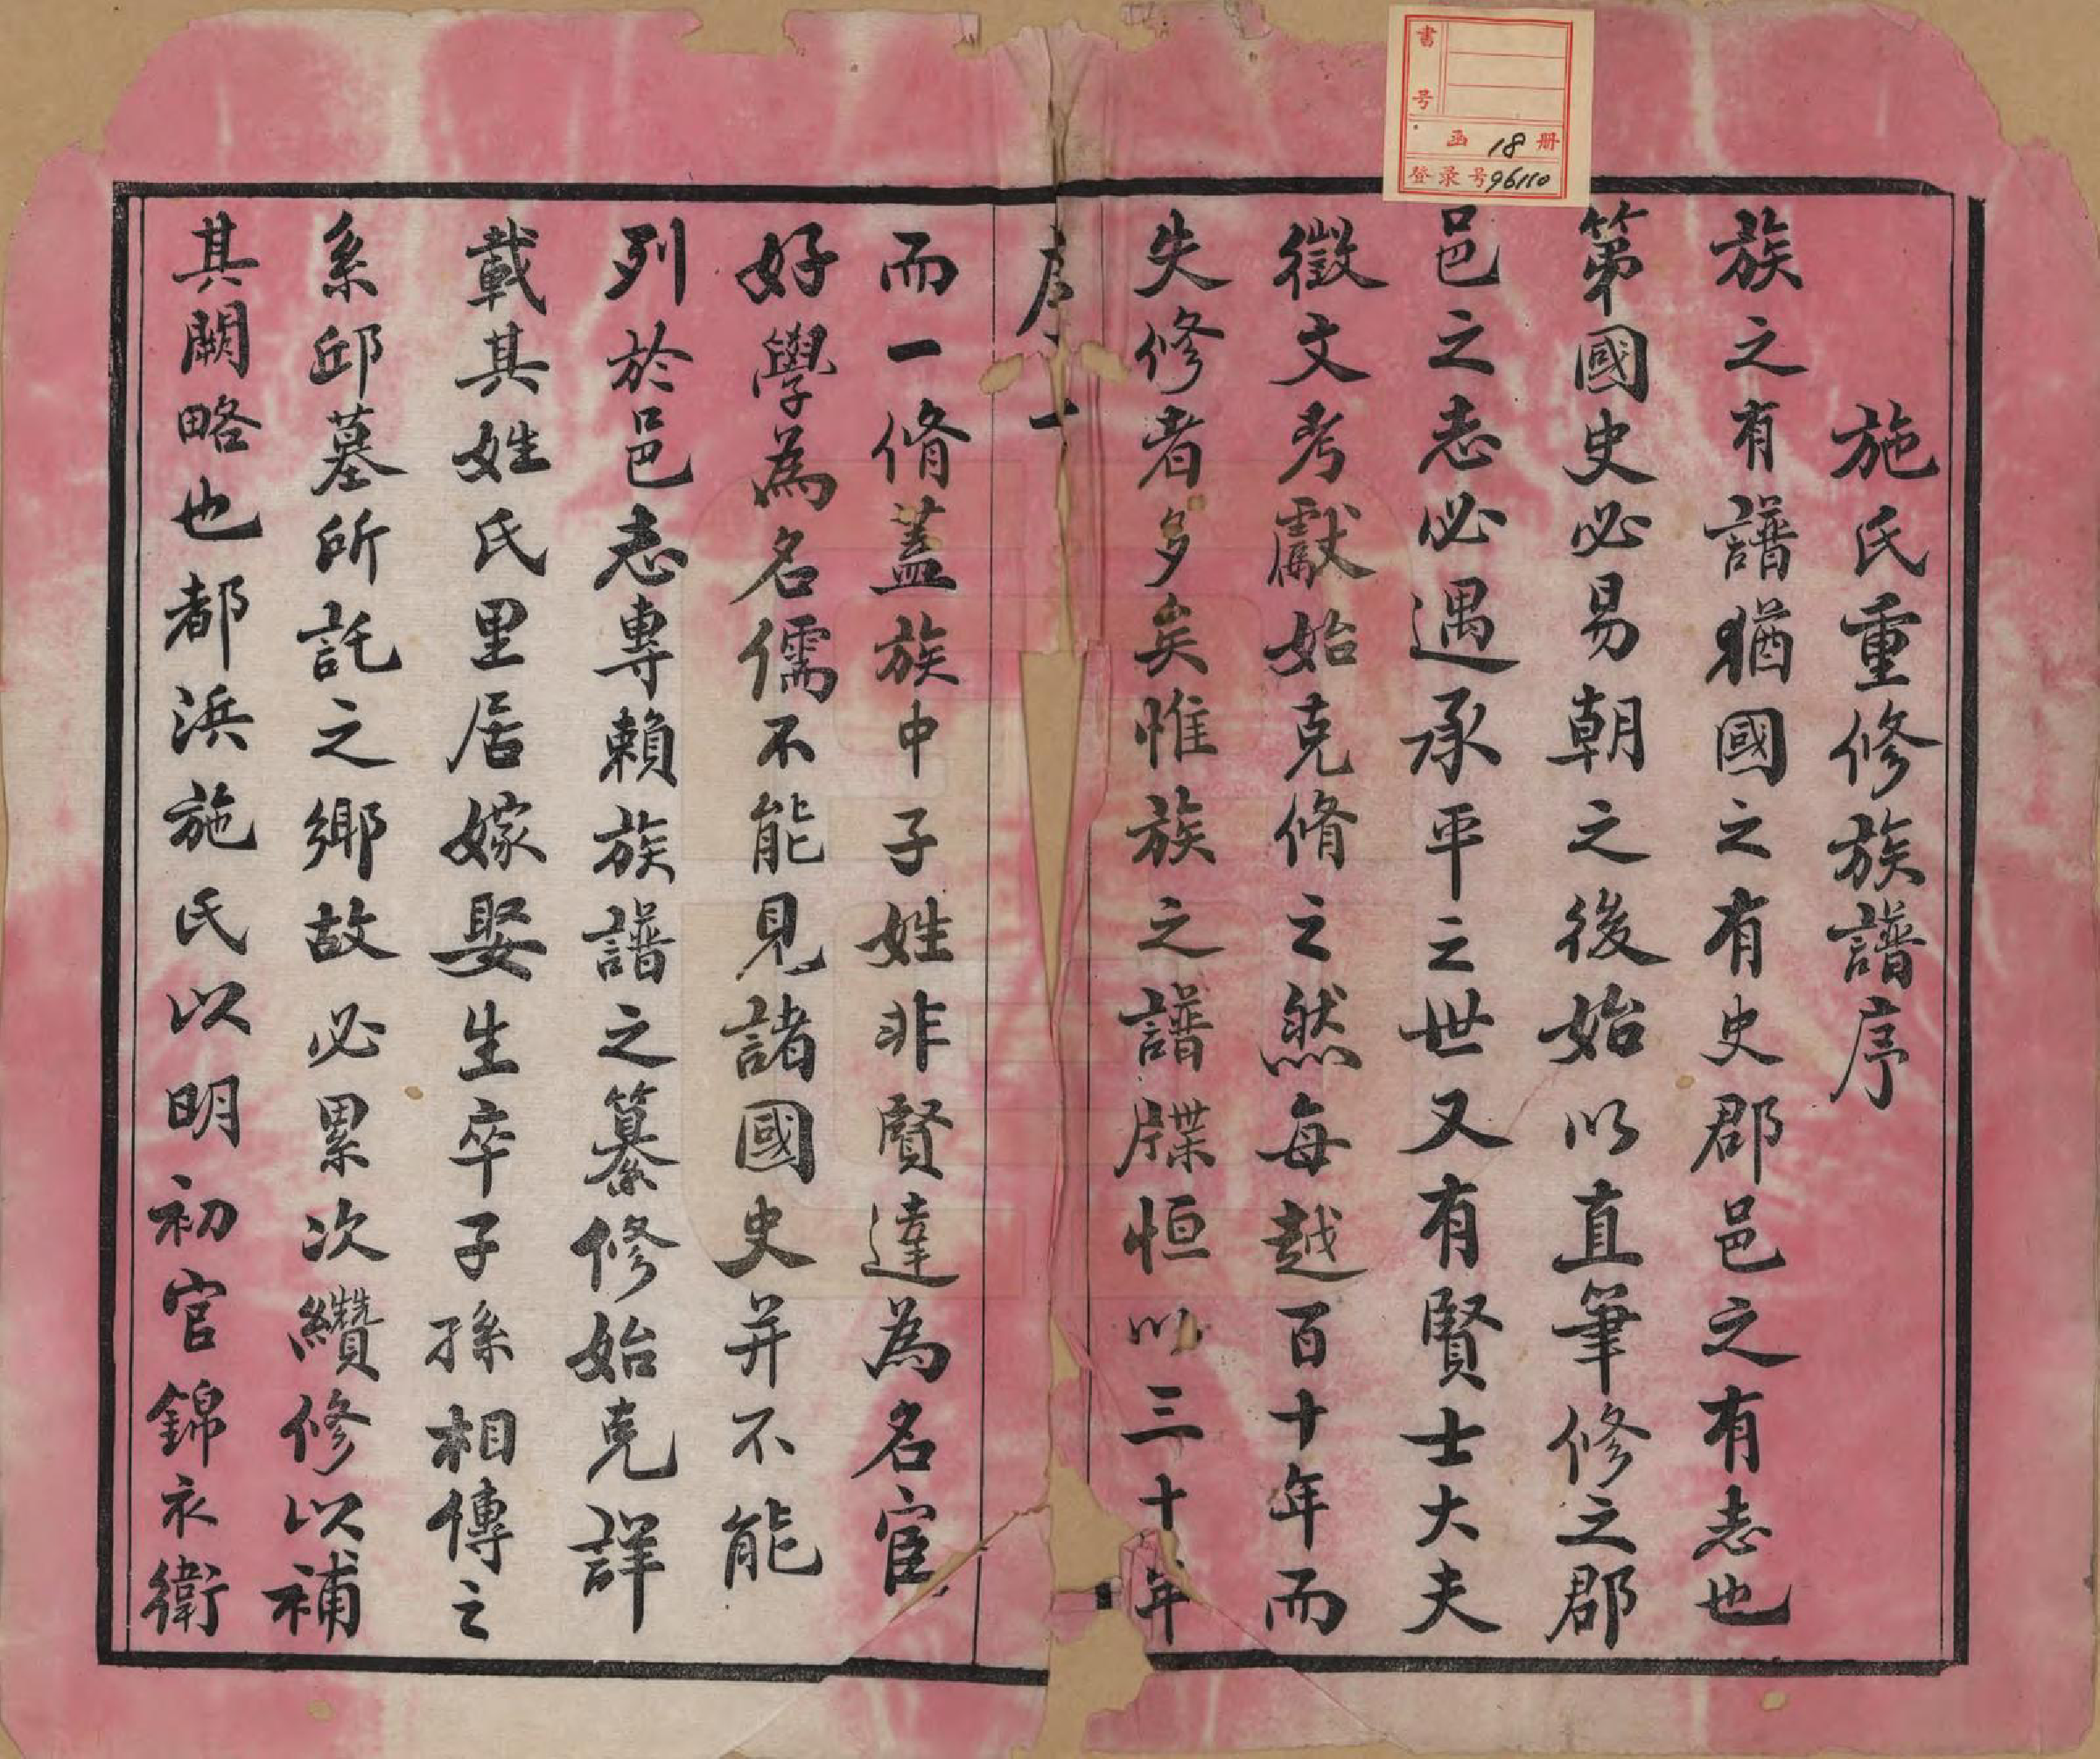 施氏重修族譜序
族之有譜猶國之有史郡邑之有志也
第國史必易朝之後始以直筆修之郡
邑之志必遇承平之世又有賢士大夫
徵文考獻始克脩之然每越百十年而
失修者多矣惟族之譜牒恒以三十年
序 一
而一脩蓋族中子姓非賢達為名宦
好學為名儒不能見諸國史并不能
列於邑志專賴族譜之纂修始克詳
載其姓氏里居嫁娶生卒子孫相傳之
系邱墓所託之鄉故必累次纘修以補
其闕略也都浜施氏以明初官錦衣衛
書号
函 18 册
登录号96110